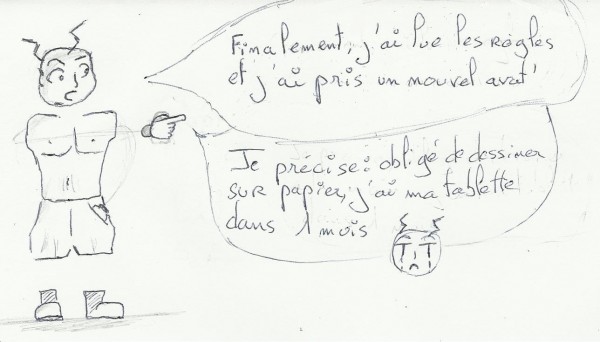 Finalement, j'ai lue les règles
et j'ai pris un nouvel avat'
Je précise : obligé de dessiner
sur papier, j'ai ma tablette
dans 1 mois